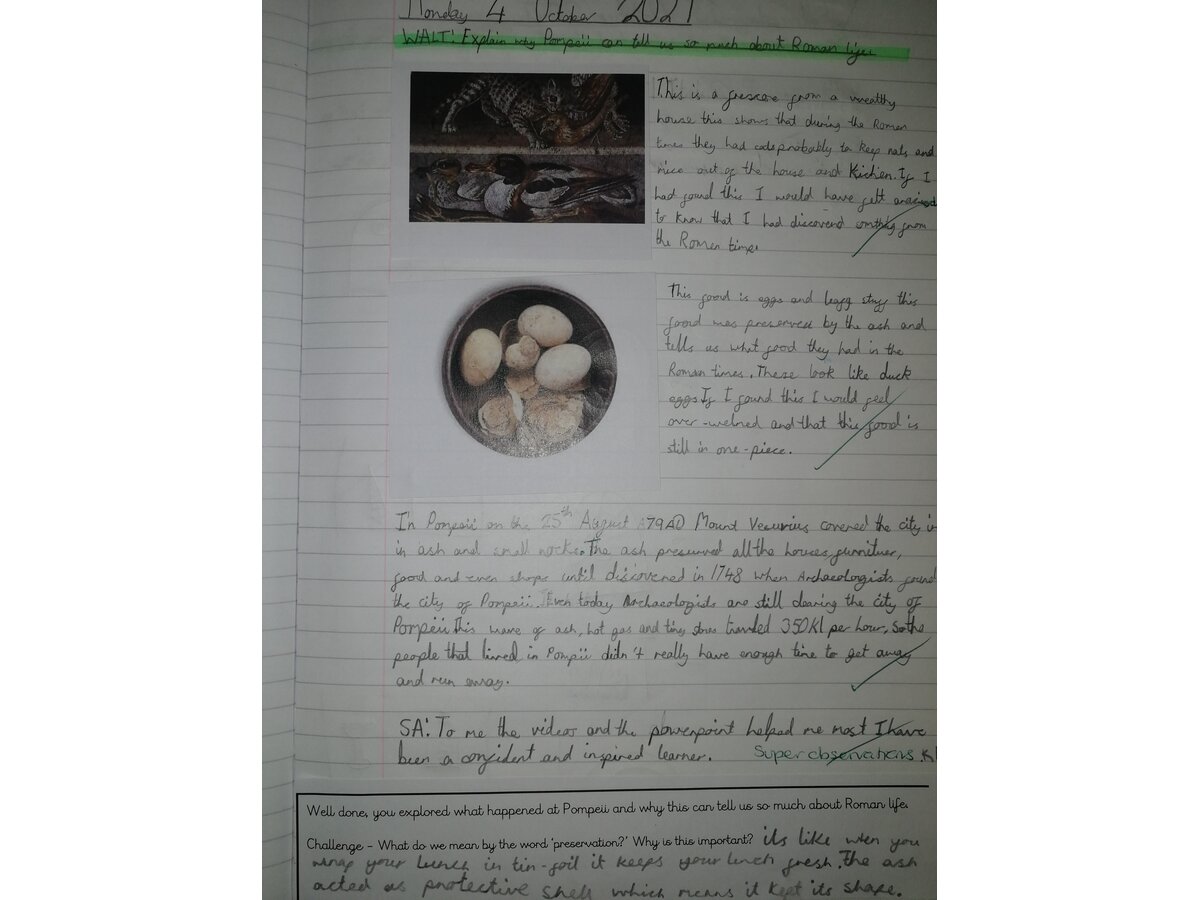 Monday 4 October 2021
WALT: Explain why Pompeii can tell us so much about Roman life.
This is a frescore from a wealthy
house this shows that during the Roman
times they had cats probably to keep rats and
mice out of the house and Kichen. If I
had found this I would have felt
to know that I had discoverd somthing from
the Roman time.
This food is eggs and leafy stuff this
food was preserved by the ash and
tells us what food they had in the
Roman times. These look like duck
eggs If I found this I would feel
over-welmed and that this food is
still in one-piece.
In Pompeii on the 25th August A79AD Mount Vesuvius covered the city
in ash and small rocks. The ash preserved all the houses,
food and even shops until discovered in 1748 when Archaeologists found
the city of Pompeii. Even today Archaeologists are still clearing the city of
Pompeii This wave of ash, hot gas and tiny stones travled 350Kl per hour, So the
people that lived in Pompii didn't really have enough time to get away
and run away.
SA: To me the videos and the powerpoint helped me most I have
been a confident and inspired learner. Super observations.
Well done, you explored what happened at Pompeii and why this can tell us so much about Roman life.
Challenge – What do we mean by the word 'preservation?' Why is this important? its like when you
wrap your lunch in tin-foil it keeps your lunch fresh. The ash
acted as protective shell which means it kept its shape.